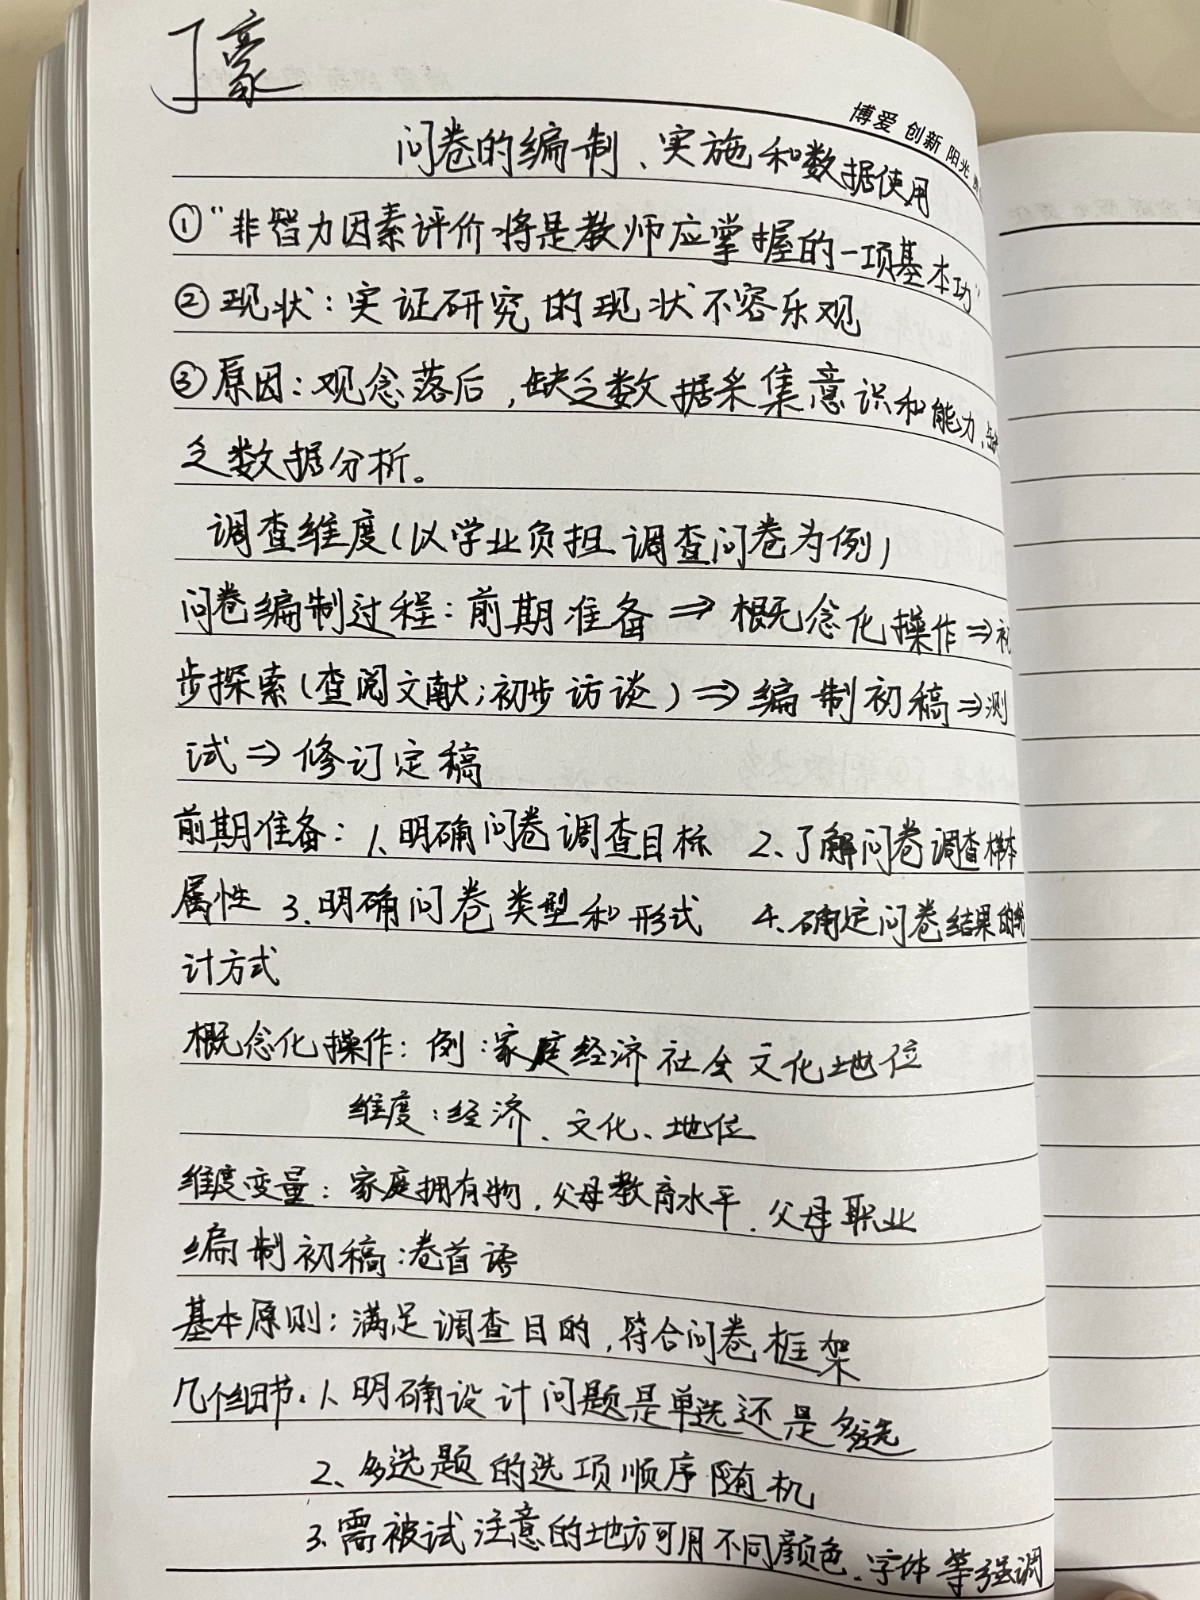 丁豪
博爱 创新 阳光
问卷的编制、实施和数据使用
①“非智力因素评价将是教师应掌握的一项基本功”
②现状：实证研究的现状不容乐观
③原因：观念落后，缺乏数据采集意识和能力、缺
乏数据分析。
调查维度(以学业负担调查问卷为例)
问卷编制过程：前期准备⇒概念化操作⇒初
步探索(查阅文献;初步访谈)⇒编制初稿⇒测
试⇒修订定稿
前期准备：1、明确问卷调查目标 2、了解问卷调查样本
属性 3、明确问卷类型和形式 4、确定问卷结果的统
计方式
概念化操作：例：家庭经济社会文化地位
维度：经济、文化、地位
维度变量：家庭拥有物，父母教育水平、父母职业
编制初稿：卷首语
基本原则：满足调查目的，符合问卷框架
几个细节：1、明确设计问题是单选还是多选
2、多选题的选项顺序随机
3、需被试注意的地方可用不同颜色、字体等强调